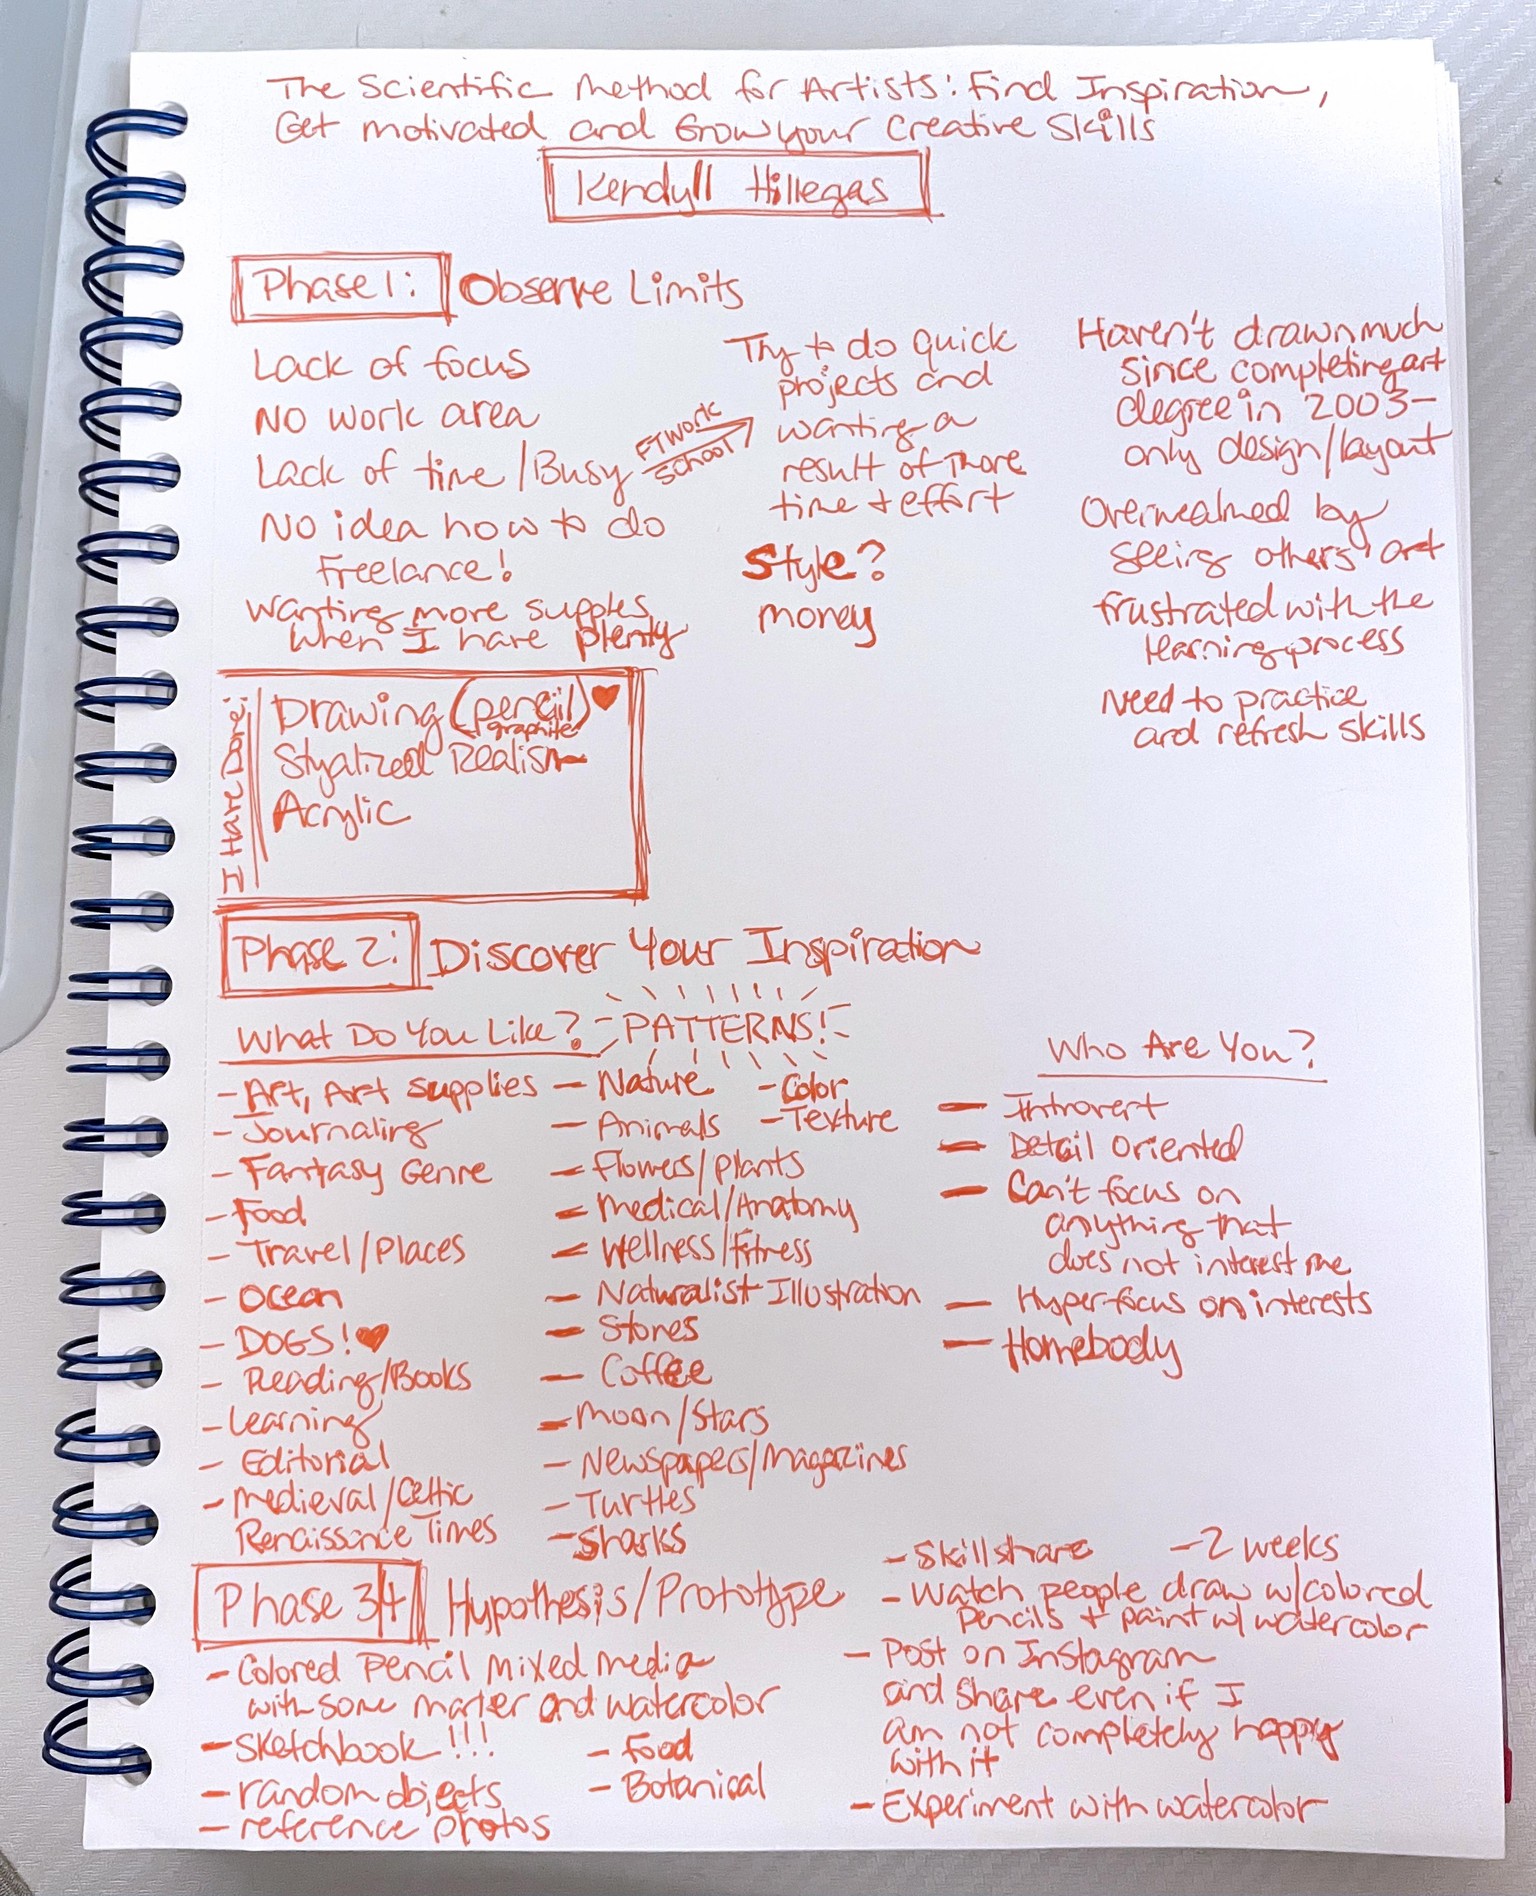 The Scientific Method for Artists: Find Inspiration,
Get Motivated and Grow your Creative Skills
Kendyll Hillegas
Phase 1: Observe Limits
Lack of focus
No work area
Lack of time / Busy
FT Work
School
No idea how to do
Freelance!
Wanting more supples
when I have plenty
Try to do quick
projects and
wanting a
result of more
time + effort
Style?
money
Haven't drawn much
since completing art
degree in 2003-
only design/layout
Overwealmed by
seeing others' art
frustrated with the
learning process
Need to practice
and refresh skills
I Have Done:
Drawing (pencil) ♥
graphite
Styalized Realism
Acrylic
Phase 2: Discover Your Inspiration
What Do You Like? PATTERNS!
- Art, Art supplies
- Journaling
- Fantasy Genre
- Food
- Travel/Places
- Ocean
- DOGS! ♥
- Reading/Books
- Learning
- Editorial
- Medieval/Celtic
Renaissance Times
- Nature
- Animals
- Flowers/Plants
- Medical/Anatomy
- Wellness/Fitness
- Naturalist Illustration
- Stores
- Coffee
- Moon/Stars
- Newspapers/Magazines
- Turtles
- Sharks
- Color
- Texture
Who Are You?
- Introvert
- Detail Oriented
- Can't focus on
anything that
does not interest me
- Hyperfocus on interests
- Homebody
Phase 3/4 Hypothesis/Prototype
- Colored Pencil Mixed Media
with some marker and watercolor
- Sketchbook!!!
- random objects
- reference photos
- Food
- Botanical
- Skillshare - 2 weeks
- Watch people draw w/colored
Pencils + paint w/ watercolor
- Post on Instagram
and share even if I
am not completely happy
with it
- Experiment with watercolor